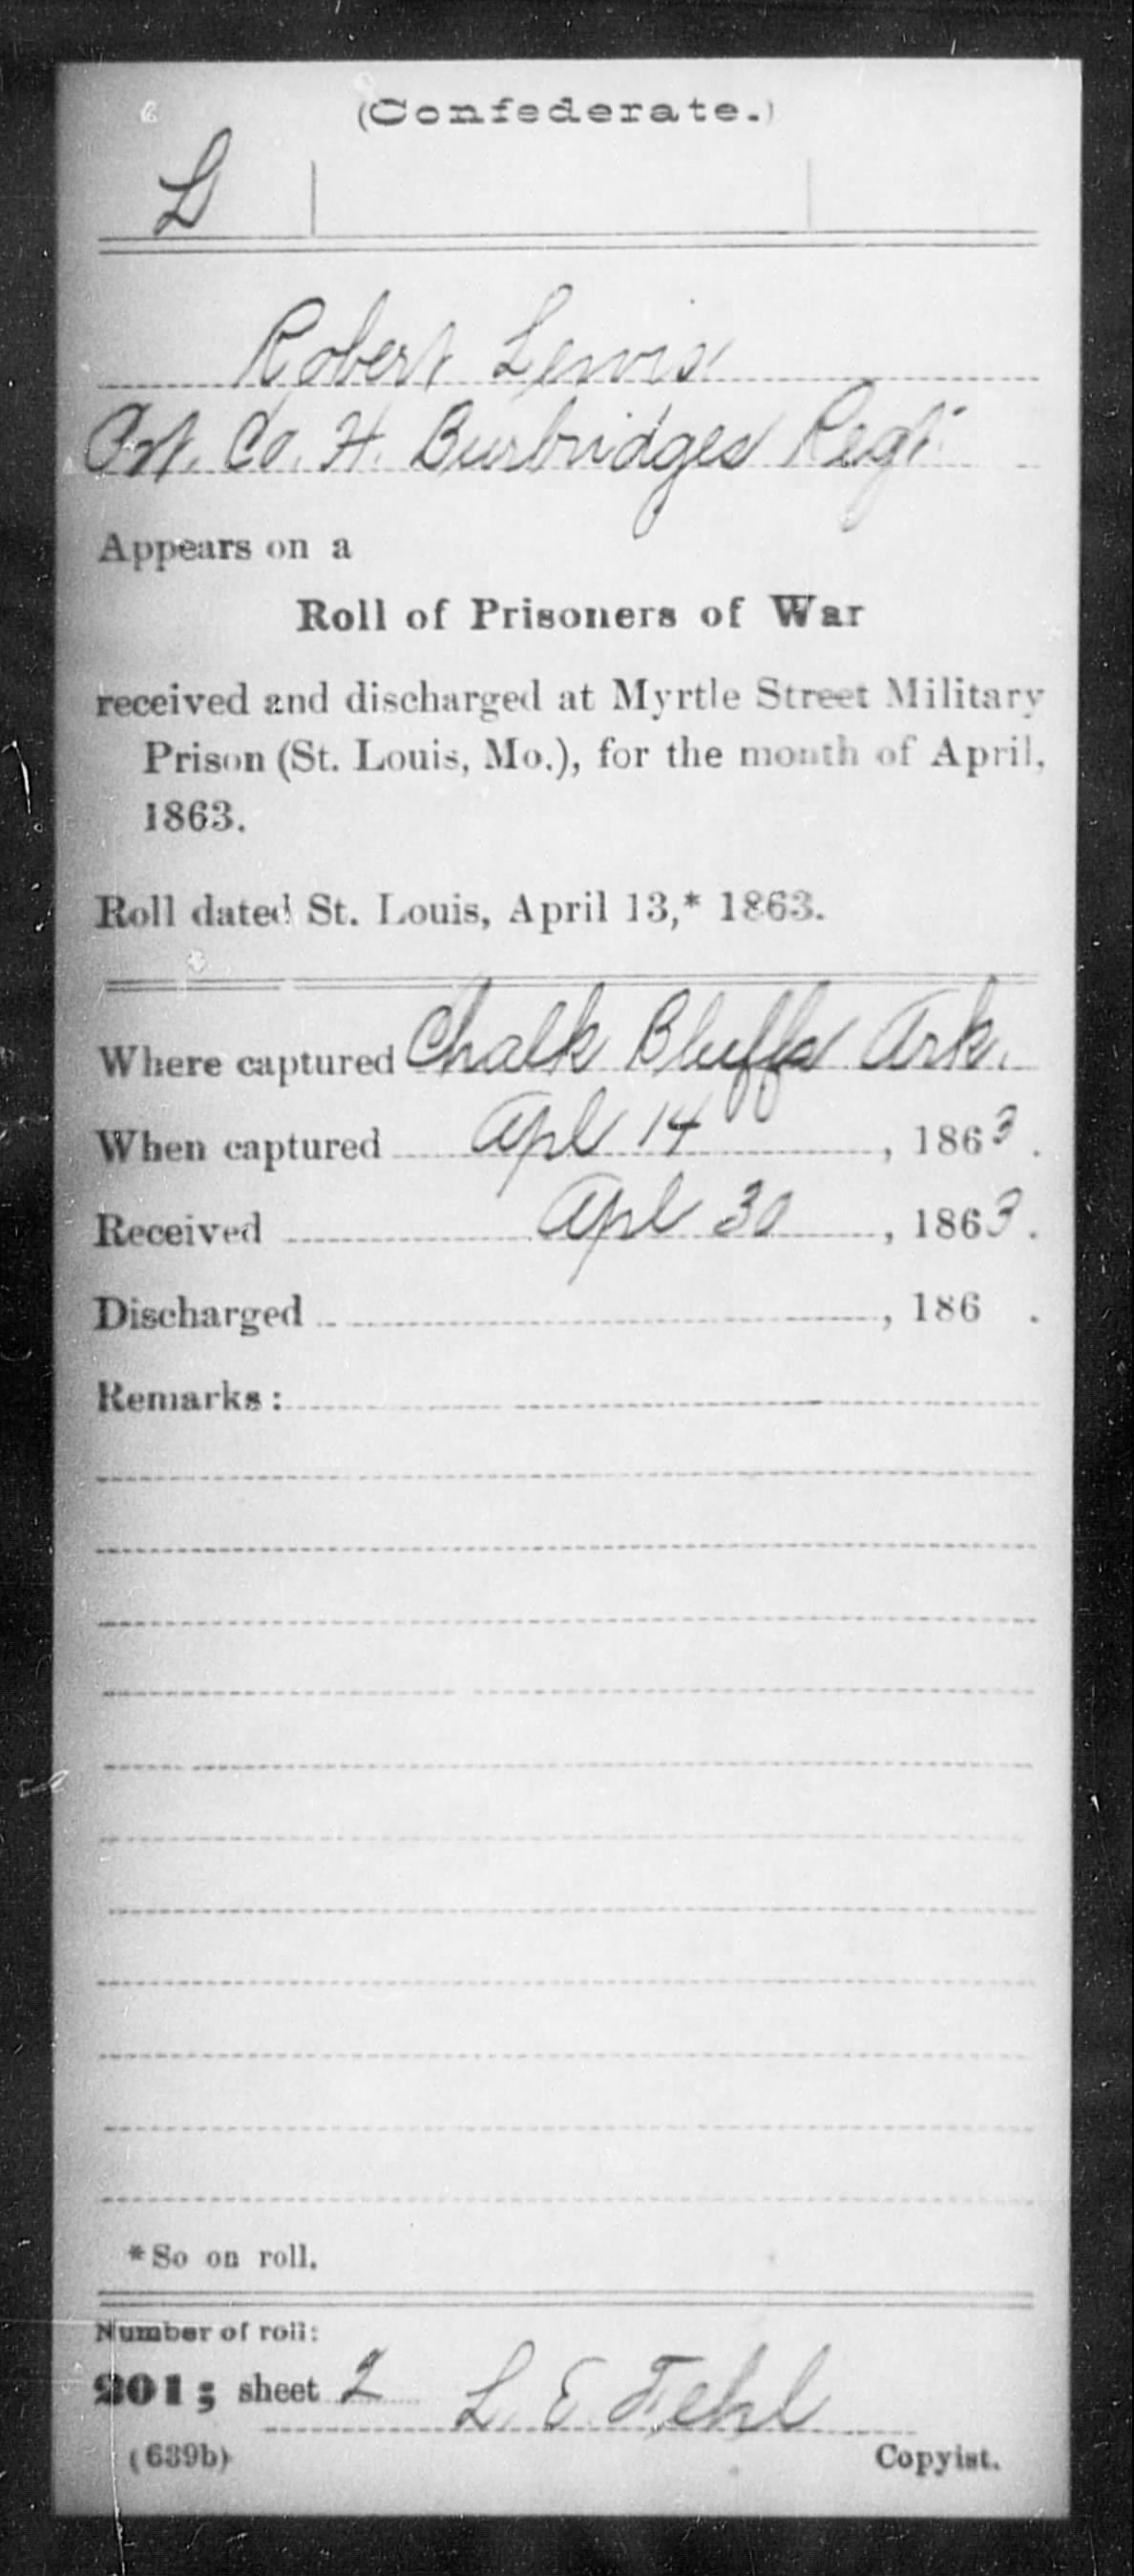 (Confederate.)
L
Robert Lewis
Pvt. Co. H. Burbridges Regt.
Appears on a
Roll of Prisoners of War
received and discharged at Myrtle Street Military
Prison (St. Louis, Mo.), for the month of April,
1863.
Roll dated St. Louis, April 13,* 1863.
Where captured Chalk Bluffs Ark.
When captured Apl 14, 1863.
Received Apl 30, 1863.
Discharged , 186 .
Remarks:
*So on roll.
Number of roll:
201; sheet 2 L. E. Fehl
(639b) Copyist.